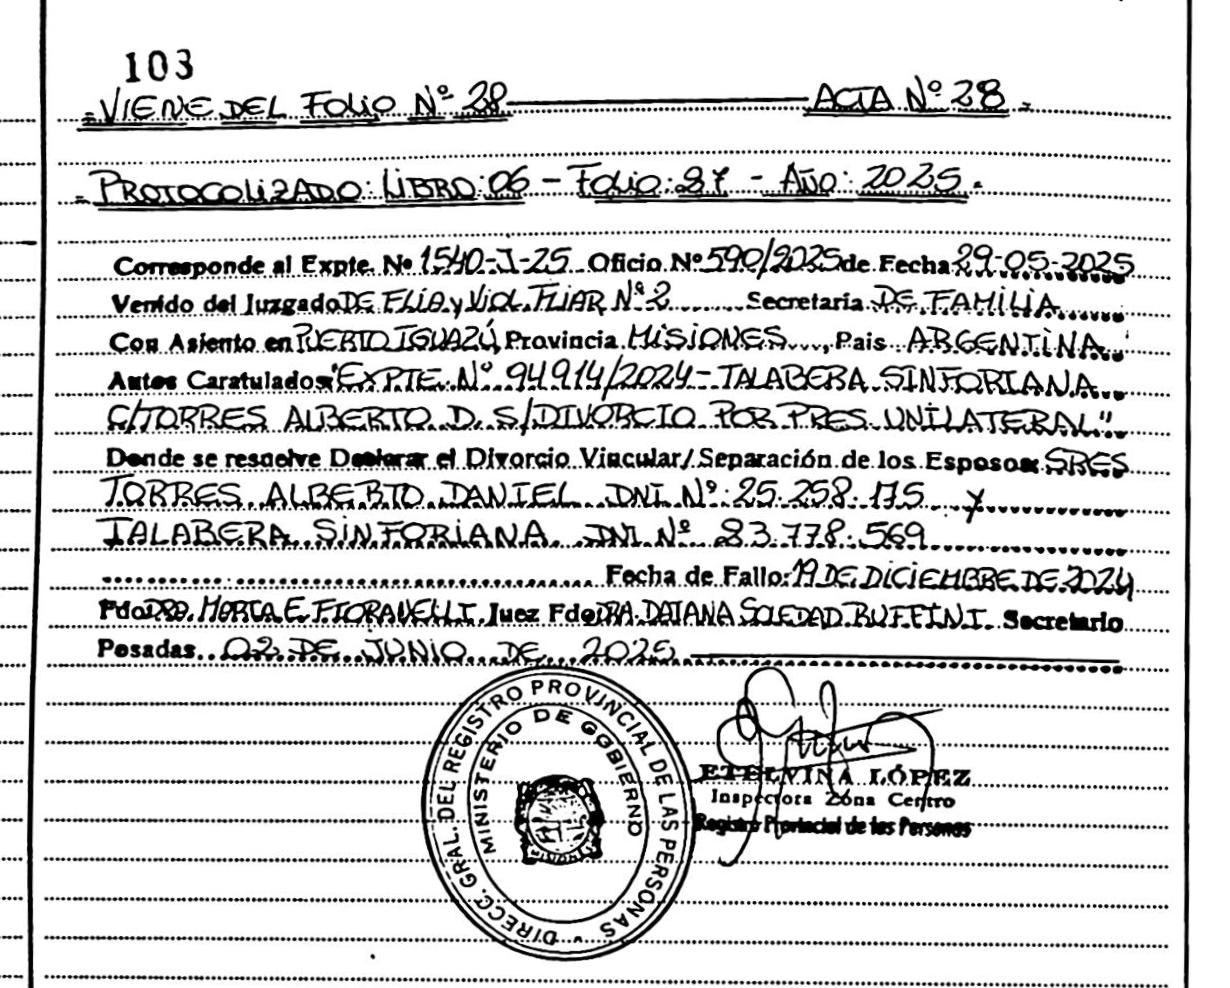 103
=VIENE DEL FOLIO Nº 28 ACTA Nº 28 =
= PROTOCOLIZADO: LIBRO: 06 - FOLIO: 87 - AÑO: 2025.=
Corresponde al Expte. Nº 1540-J-25 Oficio Nº 590/2025 de Fecha 29-05-2025
Venido del Juzgado DE FLIA y VIOL. FLIAR Nº 2 Secretaria DE FAMILIA
Con Asiento en PUERTO IGUAZÚ, Provincia MISIONES, Pais ARGENTINA
Autos Caratulados: "EXPTE. Nº 94914/2024 - TALABERA SINFORIANA
C/TORRES ALBERTO D. S/DIVORCIO POR PRES. UNILATERAL"
Donde se resuelve Declarar el Divorcio Vincular/Separación de los Esposos: SRES
TORRES ALBERTO DANIEL DNI Nº 25.258.175 y
TALABERA SINFORIANA DNI Nº 23.778.569
Fecha de Fallo: 19 DE DICIEMBRE DE 2024
Fdo DRA. MARTA E. FIORAVELLI Juez Fdo DRA. DAIANA SOLEDAD RUFFINI Secretario
Posadas 02 DE JUNIO DE 2025
DIRECC. GRAL. DEL REGISTRO PROVINCIAL DE LAS PERSONAS
MINISTERIO DE GOBIERNO
ETELVINA LÓPEZ
Inspectora Zona Centro
Registro Provincial de las Personas